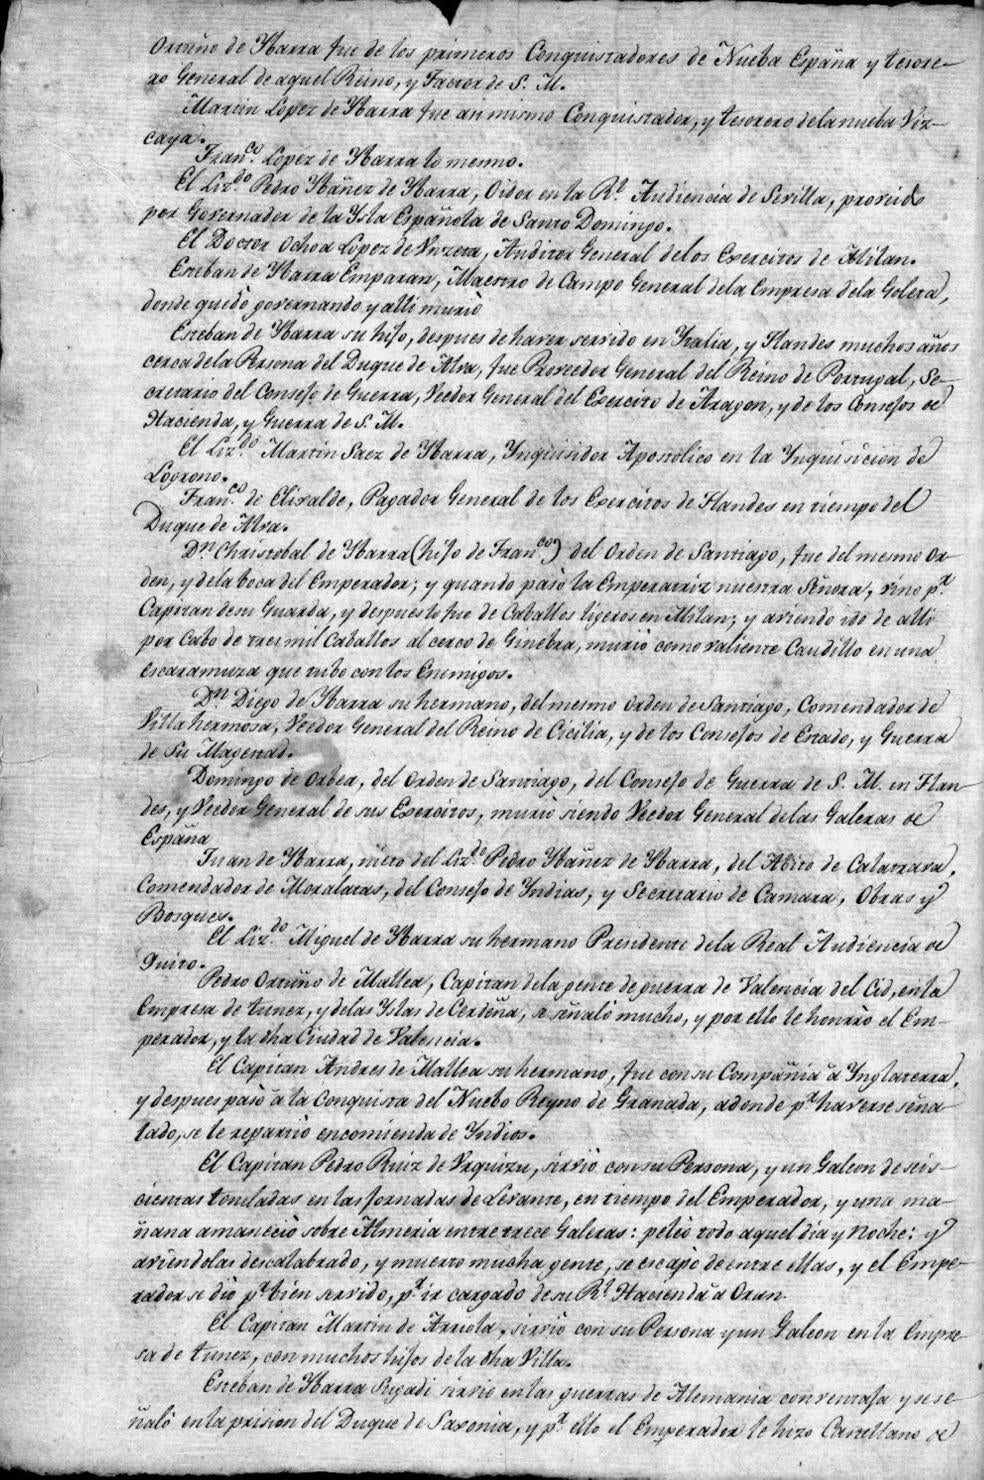 Ortuño de Ybarra fue de los primeros Conquistadores de Nueba España y tesore-
ro General de aquel Reino, y Factor de S. M.
Martin Lopez de Ybarra fue asi mismo Conquistador, y tesorero de la nueba Viz-
caya.
Fran.co Lopez de Ybarra lo mesmo.
El Liz.do Pedro Ybáñez de Ybarra, Oidor en la R.l Audiencia de Sevilla, proveido
por Governador de la Ysla Española de Santo Domingo.
El Doctor Ochoa Lopez de Vnzeta, Auditor General de los Exercitos de Milan.
Esteban de Ybarra Emparan, Maestro de Campo General de la Empresa de la Goleta,
donde quedò governando y alli muriò
Esteban de Ybarra su hijo, despues de haver servido en Ytalia, y Flandes muchos años
cerca de la Persona del Duque de Alva, fue Proveedor General del Reino de Portugal, Se-
cretario del Consejo de Guerra, Veedor General del Exercito de Aragon, y de los Consejos de
Hacienda, y Guerra de S. M.
El Liz.do Martin Saez de Ybarra, Ynquisidor Apostólico en la Ynquisicion de
Logrono.
Fran.co de Elivalde, Pagador General de los Exercitos de Flandes en tiempo del
Duque de Alva.
D.n Christobal de Ybarra (hijo de Fran.co) del Orden de Santiago, fue del mesmo Or-
den, y de la boca del Emperador; y quando pasò la Emperatriz nuestra Señora, vino p.r
Capitan de su Guarda, y despues lo fue de Caballos ligeros en Milan; y aviendo ido de alli
por Cabo de tres mil Caballos al cerco de Ginebra, muriò como valiente Caudillo en una
escaramuza que tubo con los Enemigos.
D.n Diego de Ybarra su hermano, del mesmo Orden de Santiago, Comendador de
Villahermosa, Veedor General del Reino de Cicilia, y de los Consejos de Estado, y Guerra
de Su Magestad.
Domingo de Orbea, del Orden de Santiago, del Consejo de Guerra de S. M. en Flan-
des, y Veedor General de sus Exercitos, muriò siendo Veedor General de las Galeras de
España
Juan de Ybarra, nieto del Liz.do Pedro Ybáñez de Ybarra, del Abito de Calatrava,
Comendador de Moralatas, del Consejo de Yndias, y Secretario de Camara, Obras y
Bosques.
El Liz.do Miguel de Ybarra su hermano Presidente de la Real Audiencia de
Quito.
Pedro Ortuño de Mallea, Capitan de la gente de guerra de Valencia del Cid, en la
Empresa de tunez, y de las Yslas de Cerdeña, se señalò mucho, y por ello le honrrò el Em-
perador, y la dha Ciudad de Valencia.
El Capitan Andres de Mallea su hermano, fue con su Compañia à Ynglaterra,
y despues pasò à la Conquista del Nuebo Reyno de Granada, adonde p.r haverse seña-
lado, se le repartiò encomienda de Yndios.
El Capitan Pedro Ruiz de Vrquizu, sirviò con su Persona, y un Galeon de seis-
cientas toneladas en las Jornadas de Levante, en tiempo del Emperador, y una ma-
ñana amaneciò sobre Almeria entre trece Galeras: peleò todo aquel dia y Noche; y
aviendolas descalabrado, y muerto mucha gente, se escapò de entre ellas, y el Empe-
rador se diò p.r bien servido, p.r ir cargado de su R.l Hacienda à Oran.
El Capitan Martin de Arriola, sirviò con su Persona y un Galeon en la Empre-
sa de tunez, con muchos hijos de la dha Villa.
Esteban de Ybarra Sugadi sirviò en las guerras de Alemania con ventaja y se se-
ñalò en la prision del Duque de Saxonia, y p.r ello el Emperador le hizo Castellano de